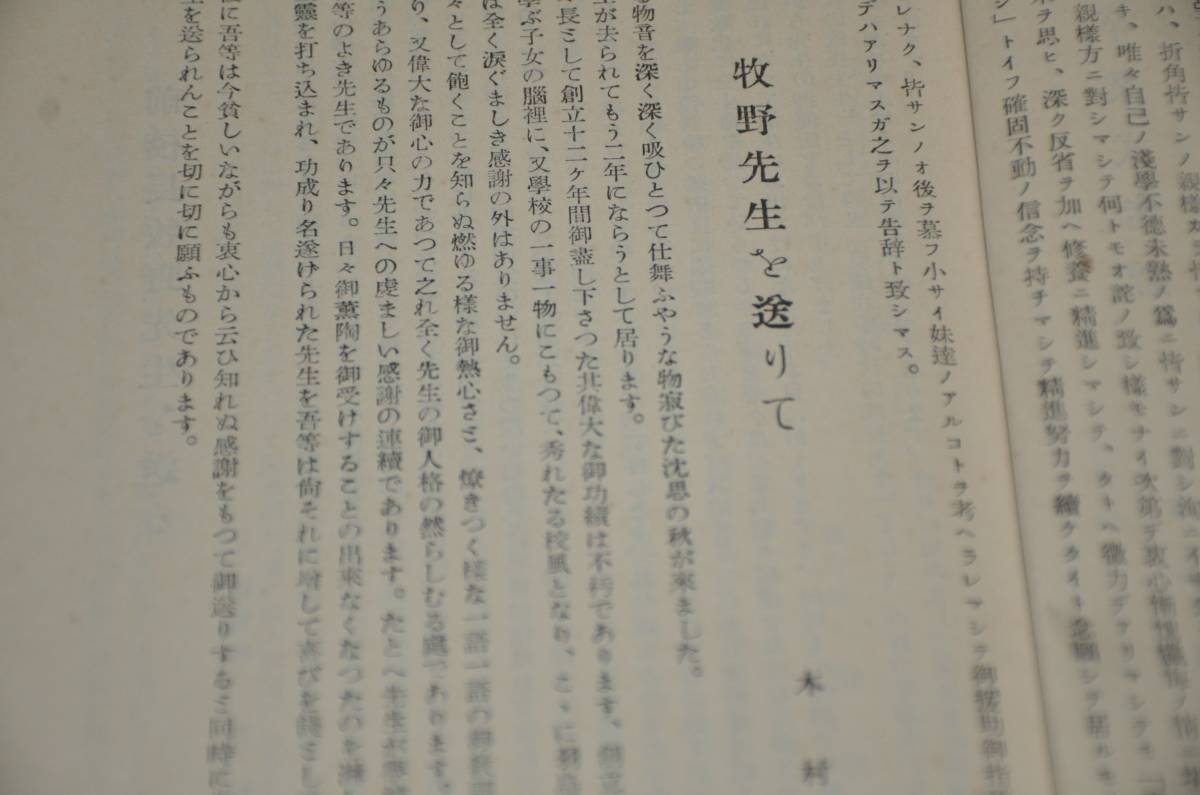 ハ、折角皆サンノ親様
キ、唯々自己ノ淺學不德未熟ノ爲ニ皆サンニ對シ
親樣方ニ對シマシテ何トモオ詫ノ致シ樣モナイ次第デ衷心
ヲ思ヒ、深ク反省ヲ加ヘ修養ニ精進シマシテ、
シ」トイフ確固不動ノ信念ヲ持チマシテ精進努力ヲ續ケ
レナク、皆サンノオ後ヲ慕フ小サイ妹達ノアルコトヲ考ヘラレマシテ御按
デハアリマスガ之ヲ以テ告辞ト致シマス。
牧野先生を送りて
木村
物音を深く深く吸ひとつて仕舞ふやうな物寂びた沈思の秋が來ました。
が去られてもう二年にならうとして居ります。
長として創立十二ヶ年間御盡し下さつた其偉大な御功績は不朽であります。
學ぶ子女の腦裡に、又學校の一事一物にこもつて、秀れたる校風となり、こゝに
は全く涙ぐましき感謝の外はありません。
々として飽くことを知らぬ燃ゆる樣な御熱心さと、燎きつく樣な一語一語の
り、又偉大な御心の力であつて之れ全く先生の御人格の然らしむる處であります。
うあらゆるものが只々先生への虔ましい感謝の連續であります。たとへ先生が
等のよき先生であります。日々御薫陶を御受けすることの出來なくなつたのを
靈を打ち込まれ、功成り名遂げられた先生を吾等は尙それに增して喜びを
に吾等は今貧しいながらも衷心から云ひ知れぬ感謝をもつて御送りすると同時に
を送られんことを切に切に願ふものであります。